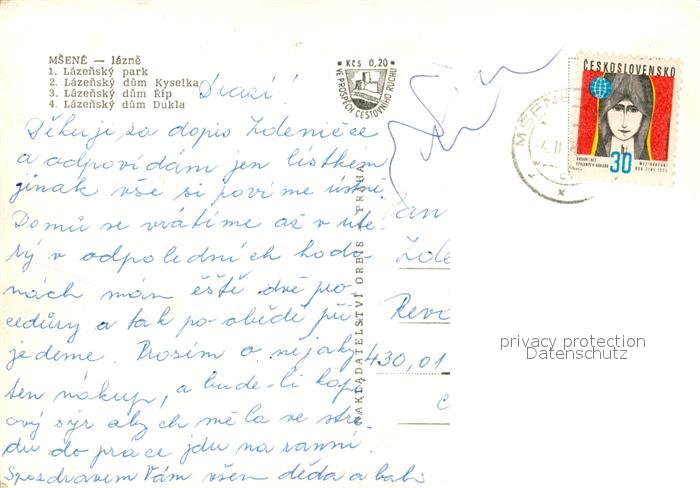 MŠENÉ — lázně
1. Lázeňský park
2. Lázeňský dům Kyselka
3. Lázeňský dům Říp
4. Lázeňský dům Dukla
Kčs 0,20
VE PROSPĚCH CESTOVNÍHO RUCHU
ČESKOSLOVENSKO
30
MŠENÉ
Drazí!
Děkuji za dopis Zdeničce
a odpovídám jen lístkem
jinak vše si povíme ústně.
Domů se vrátíme až v úte-
rý v odpoledních hodi-
nách mám éště dvě pro
cedůry a tak po obědě při
jedeme. Prosím o nějaký
ten nákup, a bude-li kop
ový sýr abych měla ve stře
du do prace jdu na ranní.
Spozdravem Vám všem děda a bab
NAKLADATELSTVÍ ORBIS PRAHA
Pan
Zde
Revo
430,01
privacy protection
Datenschutz